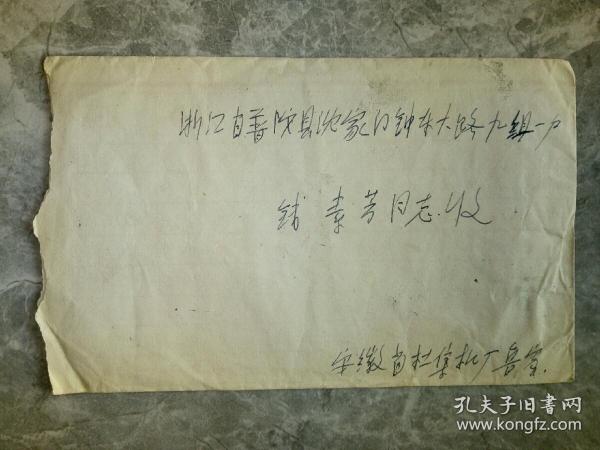 浙江省普陀县沈家门钟东大路九组一户
钱素芳同志收
安徽省杜集机厂
孔夫子旧书网
www.kongfz.com